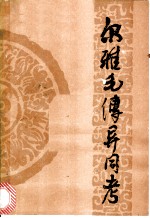 尔雅毛传异同考